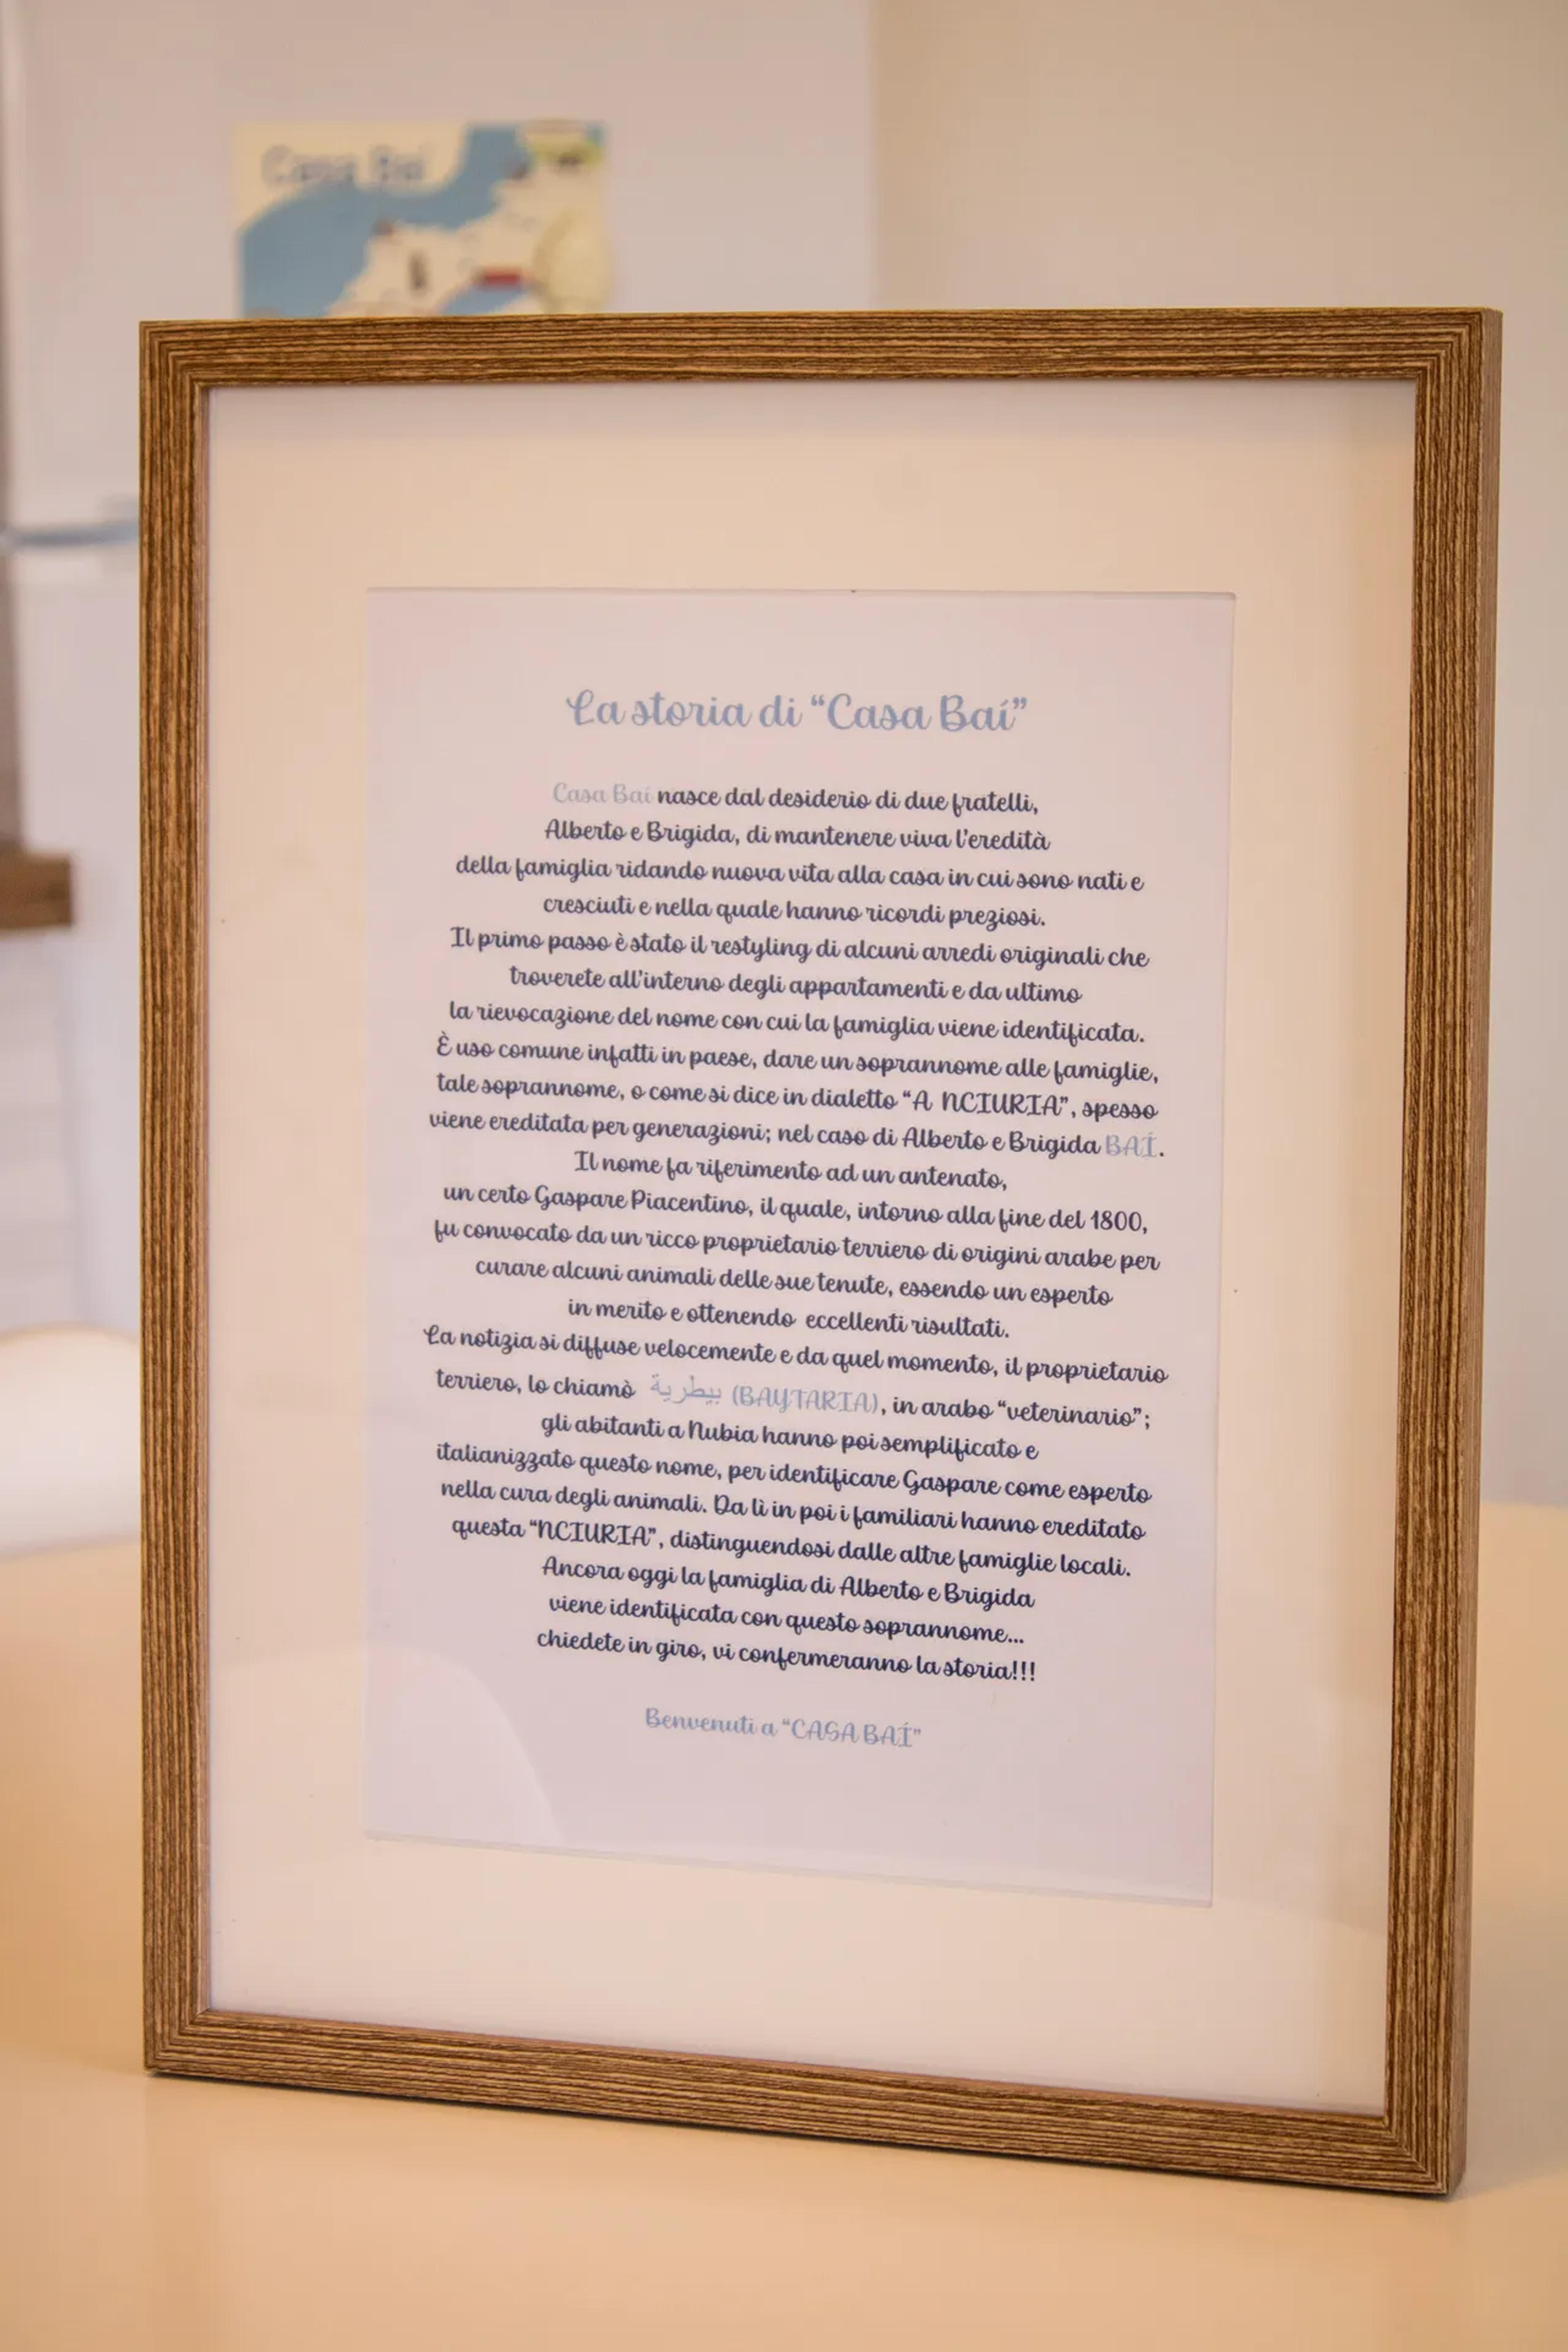 Casa Baí
La storia di “Casa Baí”
Casa Baí nasce dal desiderio di due fratelli,
Alberto e Brigida, di mantenere viva l'eredità
della famiglia ridando nuova vita alla casa in cui sono nati e
cresciuti e nella quale hanno ricordi preziosi.
Il primo passo è stato il restyling di alcuni arredi originali che
troverete all'interno degli appartamenti e da ultimo
la rievocazione del nome con cui la famiglia viene identificata.
È uso comune infatti in paese, dare un soprannome alle famiglie,
tale soprannome, o come si dice in dialetto “A NCIURIA”, spesso
viene ereditata per generazioni; nel caso di Alberto e Brigida BAÍ.
Il nome fa riferimento ad un antenato,
un certo Gaspare Piacentino, il quale, intorno alla fine del 1800,
fu convocato da un ricco proprietario terriero di origini arabe per
curare alcuni animali delle sue tenute, essendo un esperto
in merito e ottenendo eccellenti risultati.
La notizia si diffuse velocemente e da quel momento, il proprietario
terriero, lo chiamò بيطرية (BAYTARIA), in arabo “veterinario”;
gli abitanti a Nubia hanno poi semplificato e
italianizzato questo nome, per identificare Gaspare come esperto
nella cura degli animali. Da lì in poi i familiari hanno ereditato
questa “NCIURIA”, distinguendosi dalle altre famiglie locali.
Ancora oggi la famiglia di Alberto e Brigida
viene identificata con questo soprannome...
chiedete in giro, vi confermeranno la storia!!!
Benvenuti a “CASA BAÍ”